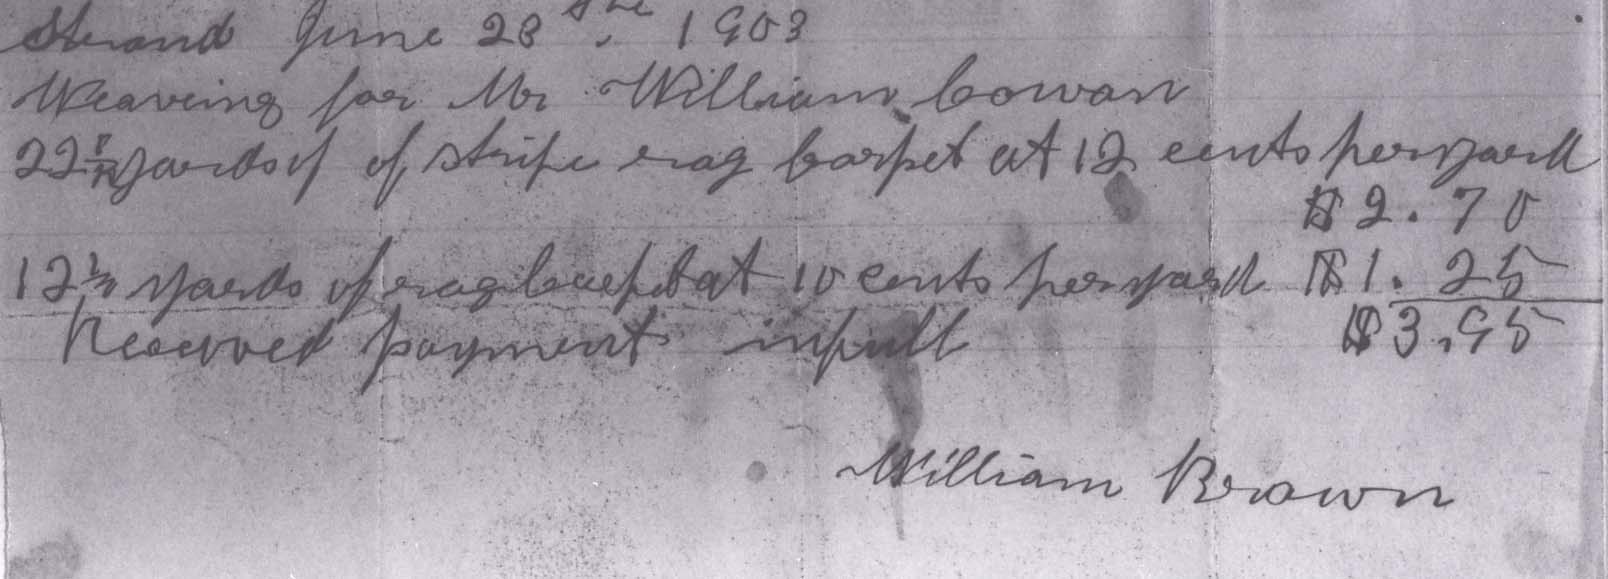 Strand June 23 the 1903
Weaveing for Mr William Cowan
22 1/2 yards of of stripe rag Carpet at 12 cents per yard
$2.70
12 1/2 yards of rag Carpet at 10 cents per yard $1.25
Received payment in full $3.95
William Brown